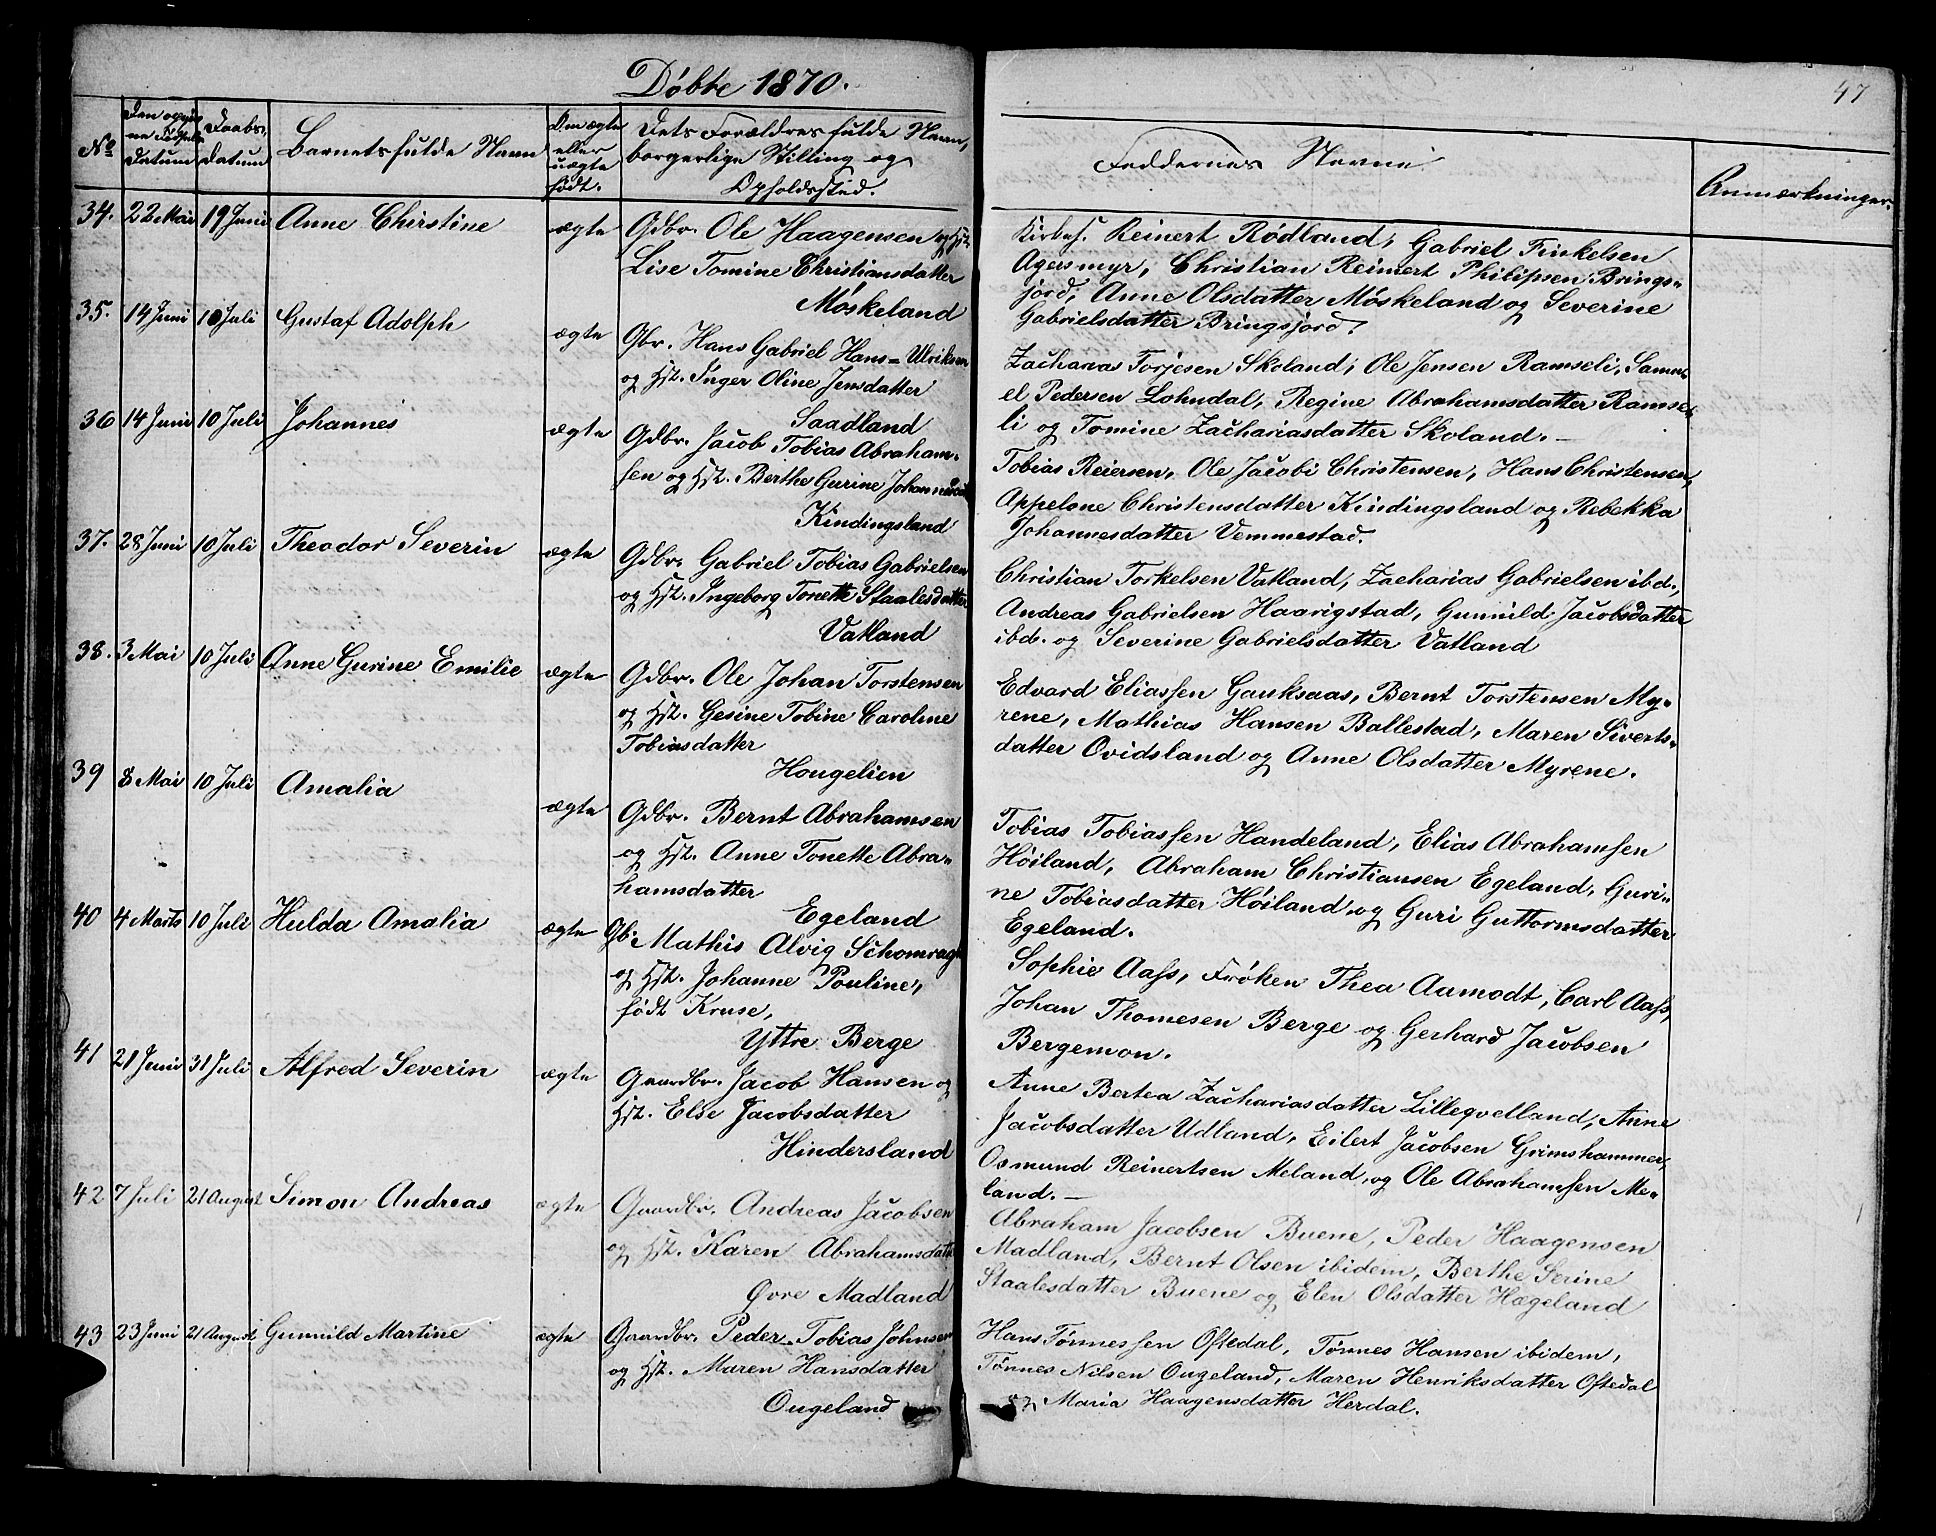 Døbte 1870.
47
No
Den opgivne Fødsels Datum
Daabs-Datum
Barnets fulde Navn
Om ægte eller uægte født.
Dets Forældres fulde Navn, borgerlige Stilling og Opholdssted.
Faddernes Navne
Anmærkninger
34. 22 Mai 19 Juni Anne Christine ægte Gdbr. Ole Haagensen og Hst.
Lise Tomine Christiansdatter
Møskeland
Reinert Rødland, Gabriel Tinkelsen
Agersmyr, Christian Reinert Philipsen Brings-
jord, Anne Olsdatter Møskeland og Severine
Gabrielsdatter Bringsjord.
35. 14 Juni 10 Juli Gustaf Adolph ægte Gbr. Hans Gabriel Hans-Ulriksen
og Hst. Inger Oline Jensdatter
Saadland
Zacharias Torjesen Skoland, Ole Jensen Ramseli, Samu-
el Pedersen Lohndal, Regine Abrahamsdatter Ramse-
li og Tomine Zachariasdatter Skoland.
36 14 Juni 10 Juli Johannes ægte Gdbr. Jacob Tobias Abraham-
sen og Hst. Berthe Gurine Johannesd.
Kindingsland
Tobias Reiersen, Ole Jacobi Christensen, Hans Christensen,
Appelone Christensdatter Kindingsland og Rebekka
Johannesdatter Vemmestad.
37. 28 Juni 10 Juli Theodor Severin ægte Gdbr. Gabriel Tobias Gabrielsen
og Hst. Ingeborg Tonette Staalesdatter
Vatland
Christian Torkelsen Vatland, Zacharias Gabrielsen ibd.,
Andreas Gabrielsen Haarigstad, Gunuild Jacobsdatter
ibd. og Severine Gabrielsdatter Vatland
38. 3 Mai 10 Juli Anne Gurine Emilie ægte Gdbr. Ole Johan Torstensen
og Hst. Gesine Tobine Caroline
Tobiasdatter
Hougelien
Edvard Eliassen Gauksaas, Bernt Torstensen My-
rene, Mathias Hansen Ballestad, Maren Siverts-
datter Ovidsland og Anne Olsdatter Myrene.
39 8 Mai 10 Juli Amalia ægte Gdbr. Bernt Abrahamsen
og Hst. Anne Tonette Abra-
hamsdatter
Egeland
Tobias Tobiassen Handeland, Elias Abrahamsen
Høiland, Abraham Christiansen Egeland, Guri-
ne Tobiasdatter Høiland og Guri Guttormsdatter
Egeland.
40 4 Marts 10 Juli Hulda Amalia ægte Gb. Mathis Alvig Schomrag
og Hst. Johanne Pouline,
født Kruse,
Yttre Berge
Sophie Aass, Frøken Thea Aamodt, Carl Aass,
Johan Thomesen Berge og Gerhard Jacobsen
Bergemon.
41 21 Juni 31 Juli Alfred Severin ægte Gaardbr. Jacob Hansen og
Hst. Else Jacobsdatter
Hindersland
Anne Bertea Zachariasdatter Lilleqvelland, Anne
Jacobsdatter Udland, Eilert Jacobsen Grimshammer,
Osmund Reinertsen Meland, og Ole Abrahamsen Me-
land.
42 7 Juli 21 August Simon Andreas ægte Gaardbr. Andreas Jacobsen
og Hst. Karen Abrahamsdatter
Øvre Madland
Abraham Jacobsen Buene, Peder Haagensen
Madland, Bernt Olsen ibidem, Berthe Serine
Staalesdatter Buene og Elen Olsdatter Hægeland
43 23 Juni 21 August Gunuild Martine ægte Gaardbr. Peder Tobias Johnsen
og Hst. Maren Hansdatter
Ougeland
Hans Tønnessen Oftedal, Tønnes Hansen ibidem,
Tønnes Nilsen Ougeland, Maren Henriksdatter Oftedal
og Maria Haagensdatter Herdal.